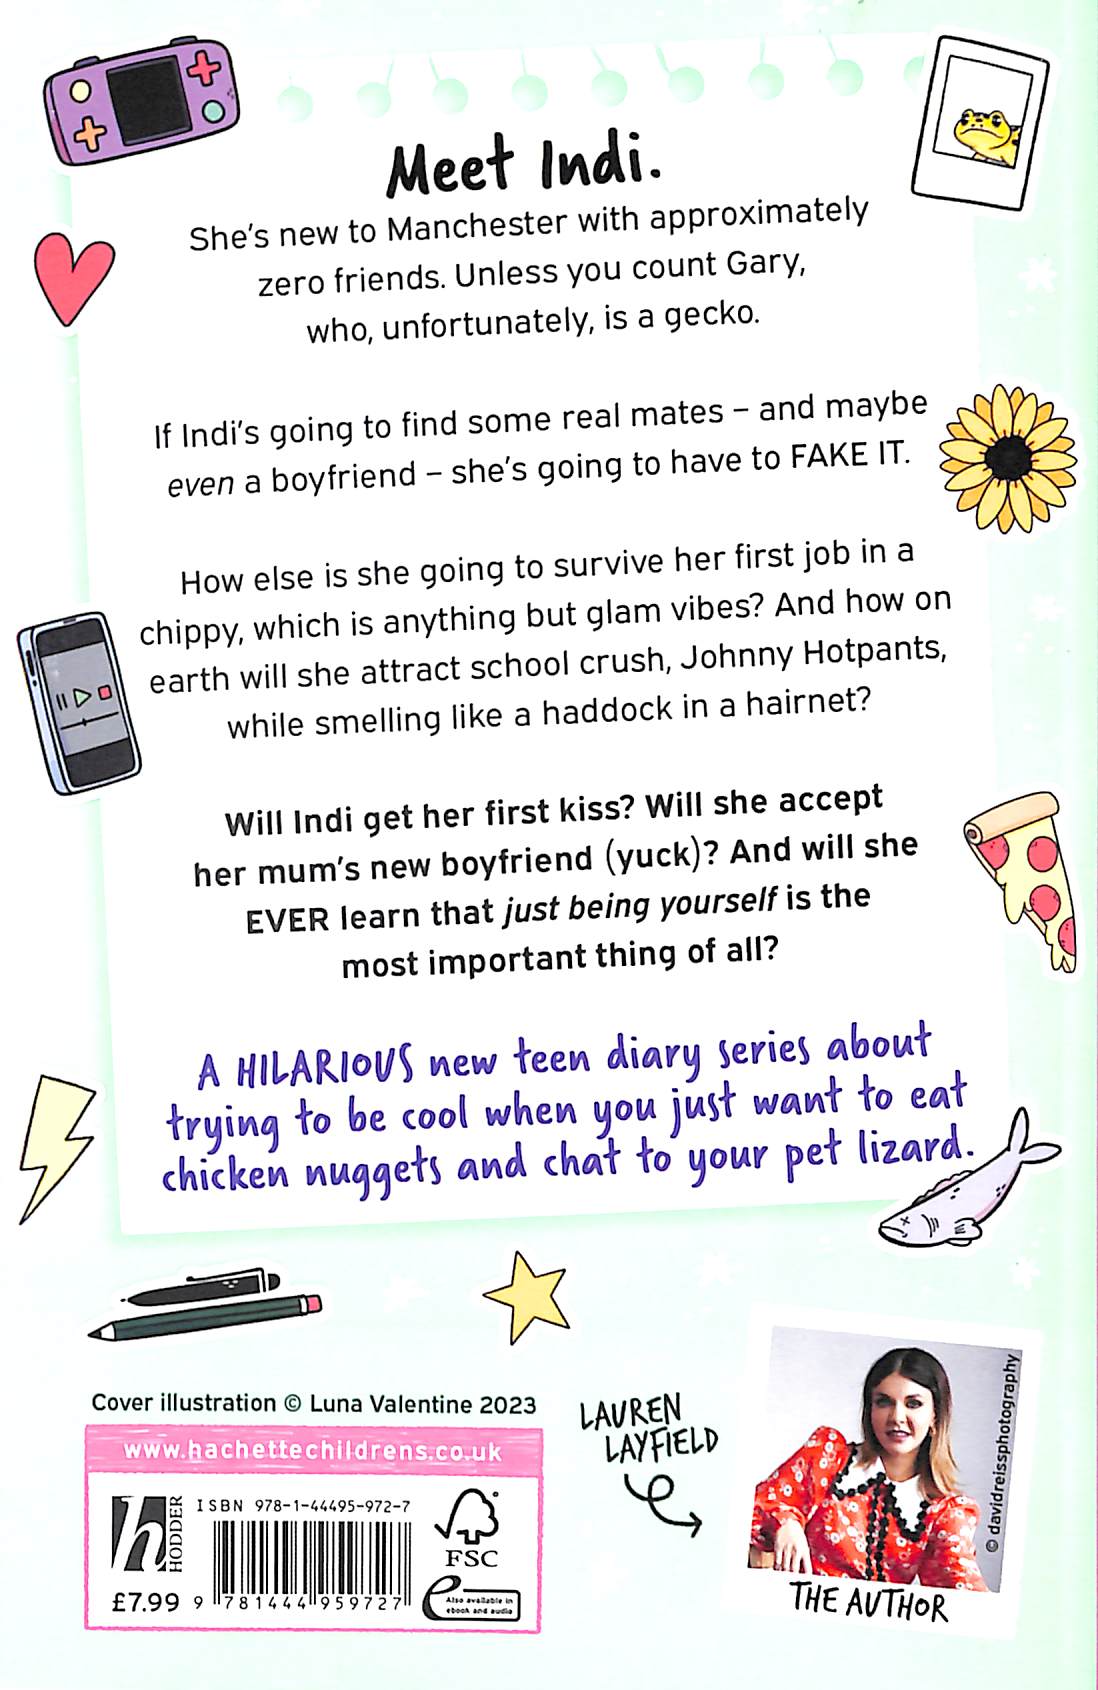 Meet Indi.
She's new to Manchester with approximately
zero friends. Unless you count Gary,
who, unfortunately, is a gecko.
If Indi's going to find some real mates – and maybe
even a boyfriend – she's going to have to FAKE IT.
How else is she going to survive her first job in a
chippy, which is anything but glam vibes? And how on
earth will she attract school crush, Johnny Hotpants,
while smelling like a haddock in a hairnet?
Will Indi get her first kiss? Will she accept
her mum's new boyfriend (yuck)? And will she
EVER learn that just being yourself is the
most important thing of all?
A HILARIOUS new teen diary series about
trying to be cool when you just want to eat
chicken nuggets and chat to your pet lizard.
Cover illustration © Luna Valentine 2023
www.hachettechildrens.co.uk
h HODDER
ISBN 978-1-44495-972-7
£7.99
9 781444 959727
FSC
Also available in
ebook and audio
LAUREN
LAYFIELD
© davidreissphotography
THE AUTHOR